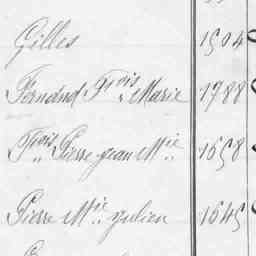 Gilles 1504
Fernand Fçois Marie 1788
Fçois Pierre jean Mie 1658
Pierre Mie julien 1645